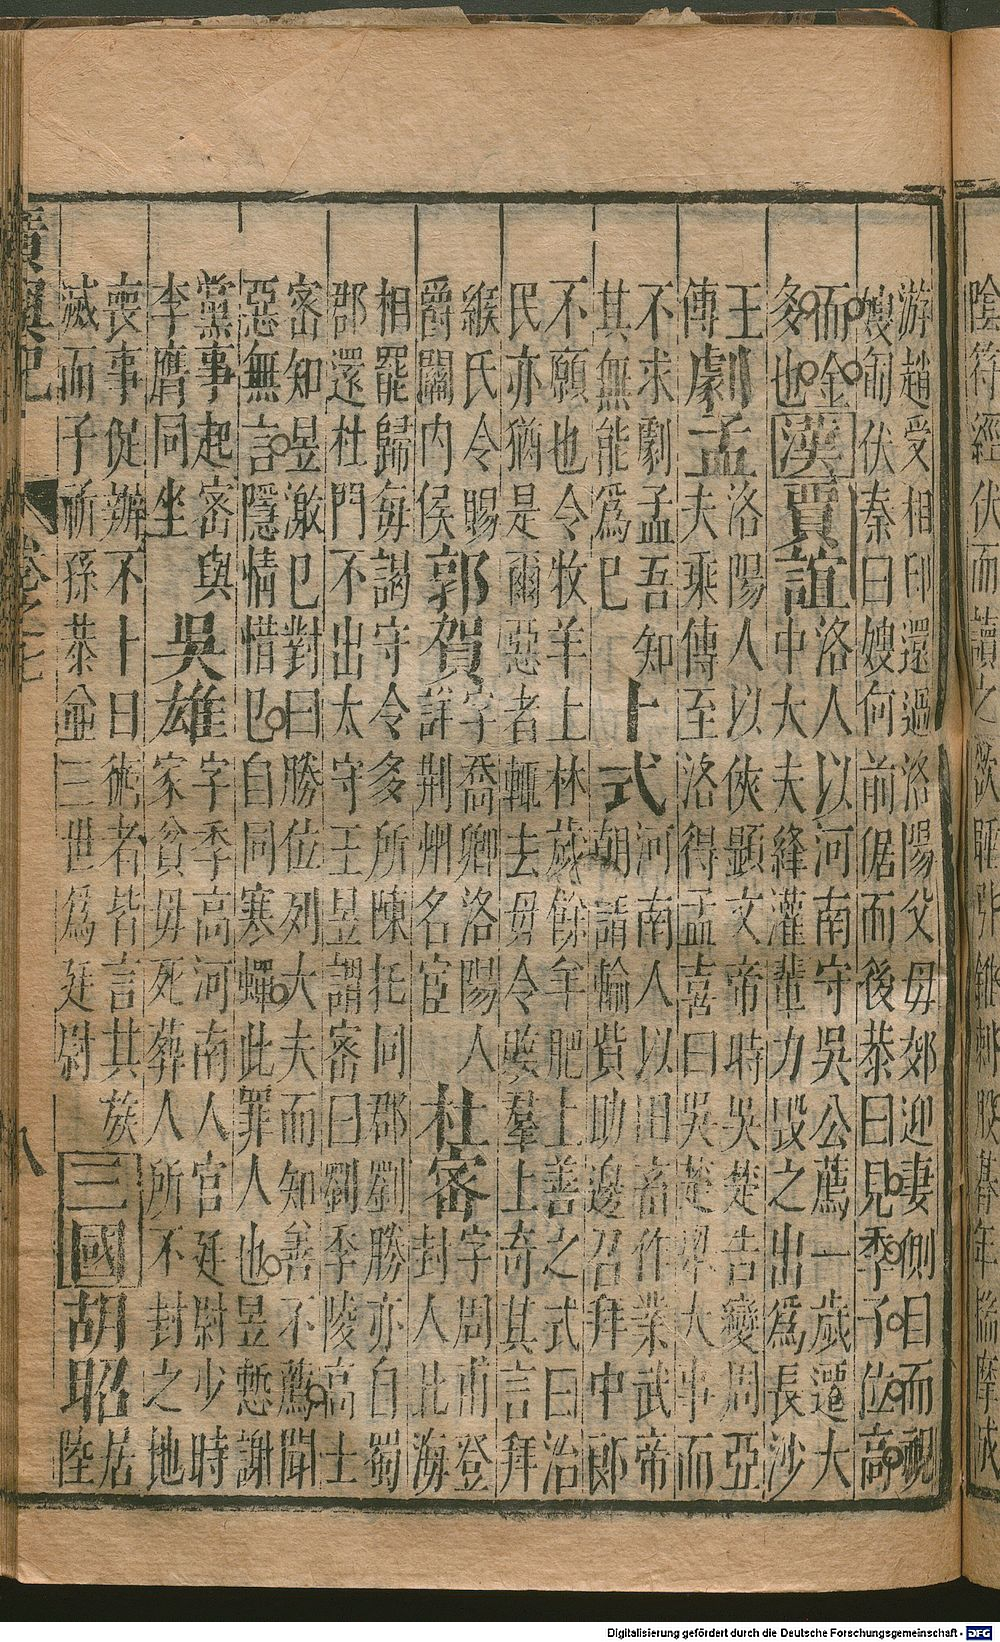 陰符經伏而讀之欲睡引錐刺股朞年揣摩成
游趙受相印還過洛陽父母郊迎妻側目而視
嫂匍伏秦曰嫂何前倨而後恭曰見季子位高
而金
多也
漢
賈誼
洛人以河南守吳公薦一歲遷大
中大夫絳灌輩力毀之出爲長沙
王
傅
劇孟
洛陽人以俠顯文帝時吳楚告變周亞
夫乘傳至洛得孟喜曰吳楚舉大事而
不求劇孟吾知
其無能爲已
卜式
河南人以田畜作業武帝
朝請輸貲助邊召拜中郎
不願也令牧羊上林歲餘羊肥上善之式曰治
民亦猶是爾惡者輒去毋令敗羣上奇其言拜
緱氏令賜
爵關内侯
郭賀
字喬卿洛陽人
詳荆州名宦
杜密
字周甫登
封人北海
相罷歸每謁守令多所陳托同郡劉勝亦自蜀
郡還杜門不出太守王昱謂密曰劉季陵高士
密知昱激已對曰勝位列大夫而知善不薦聞
惡無言隱情惜已自同寒蟬此罪人也昱慙謝
黨事起密與
李膺同坐
吳雄
字季高河南人官廷尉少時
家貧母死葬人所不封之地
喪事促辦不卜日術者皆言其族
滅而子訢孫恭並三世爲廷尉
三國
胡昭
居
陸
廣輿記
卷之七
八
Digitalisierung gefördert durch die Deutsche Forschungsgemeinschaft - DFG